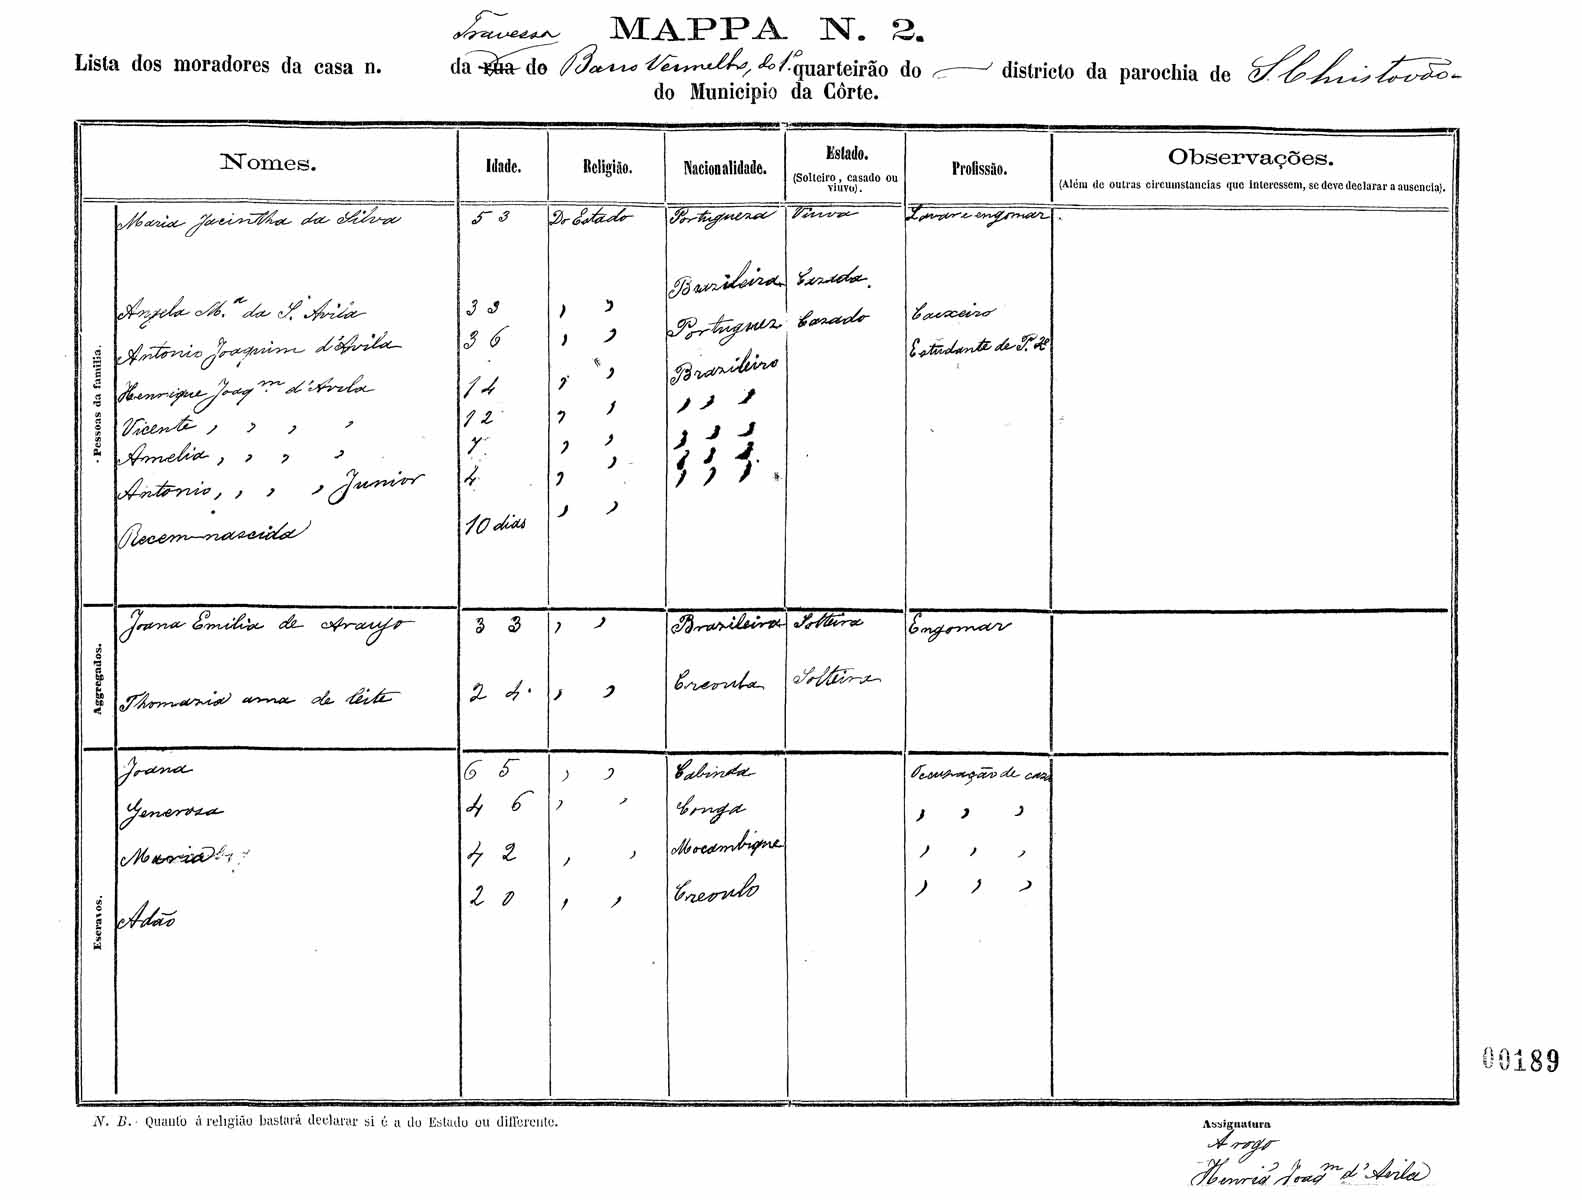 MAPPA N. 2.
Travessa
Lista dos moradores da casa n. da rua do Barro Vermelho, do 1º quarteirão do — districto da parochia de S. Christovão
do Municipio da Côrte.
Nomes. Idade. Religião. Nacionalidade. Estado. (Solteiro, casado ou viuvo). Profissão. Observações. (Além de outras circumstancias que interessem, se deve declarar a ausencia).
Pessoas da familia.
Maria Jacintha da Silva 53 Do Estado Portugueza Viuva Lavar e engomar
Angela M.ª da S.ª Avila 33 , , Brazileira Cazada.
Antonio Joaquim d'Avila 36 , , Portuguez Cazado Caixeiro
Henrique Joaq.m d'Avila 14 , , Brazileiro Estudante de
Vicente , , , , 12 , , , , ,
Amelia , , , , 7 , , , , ,
Antonio , , , , Junior 4 , , , , ,
Recem-nascida 10 dias , ,
Aggregados.
Joana Emilia de Araujo 33 , , Brazileira Solteira Engomar
Thomazia ama de leite 24 , , Creoula Solteira
Escravos.
Joana 65 , , Cabinda Occupação de caza
Generosa 46 , , Conga , , ,
Maria 42 , , Mocambique , , ,
Adão 20 , , Creoulo , , ,
00189
N. B. Quanto á religião bastará declarar si é a do Estado ou differente.
Assignatura
A rogo
Henriq Joaq.m d'Avila